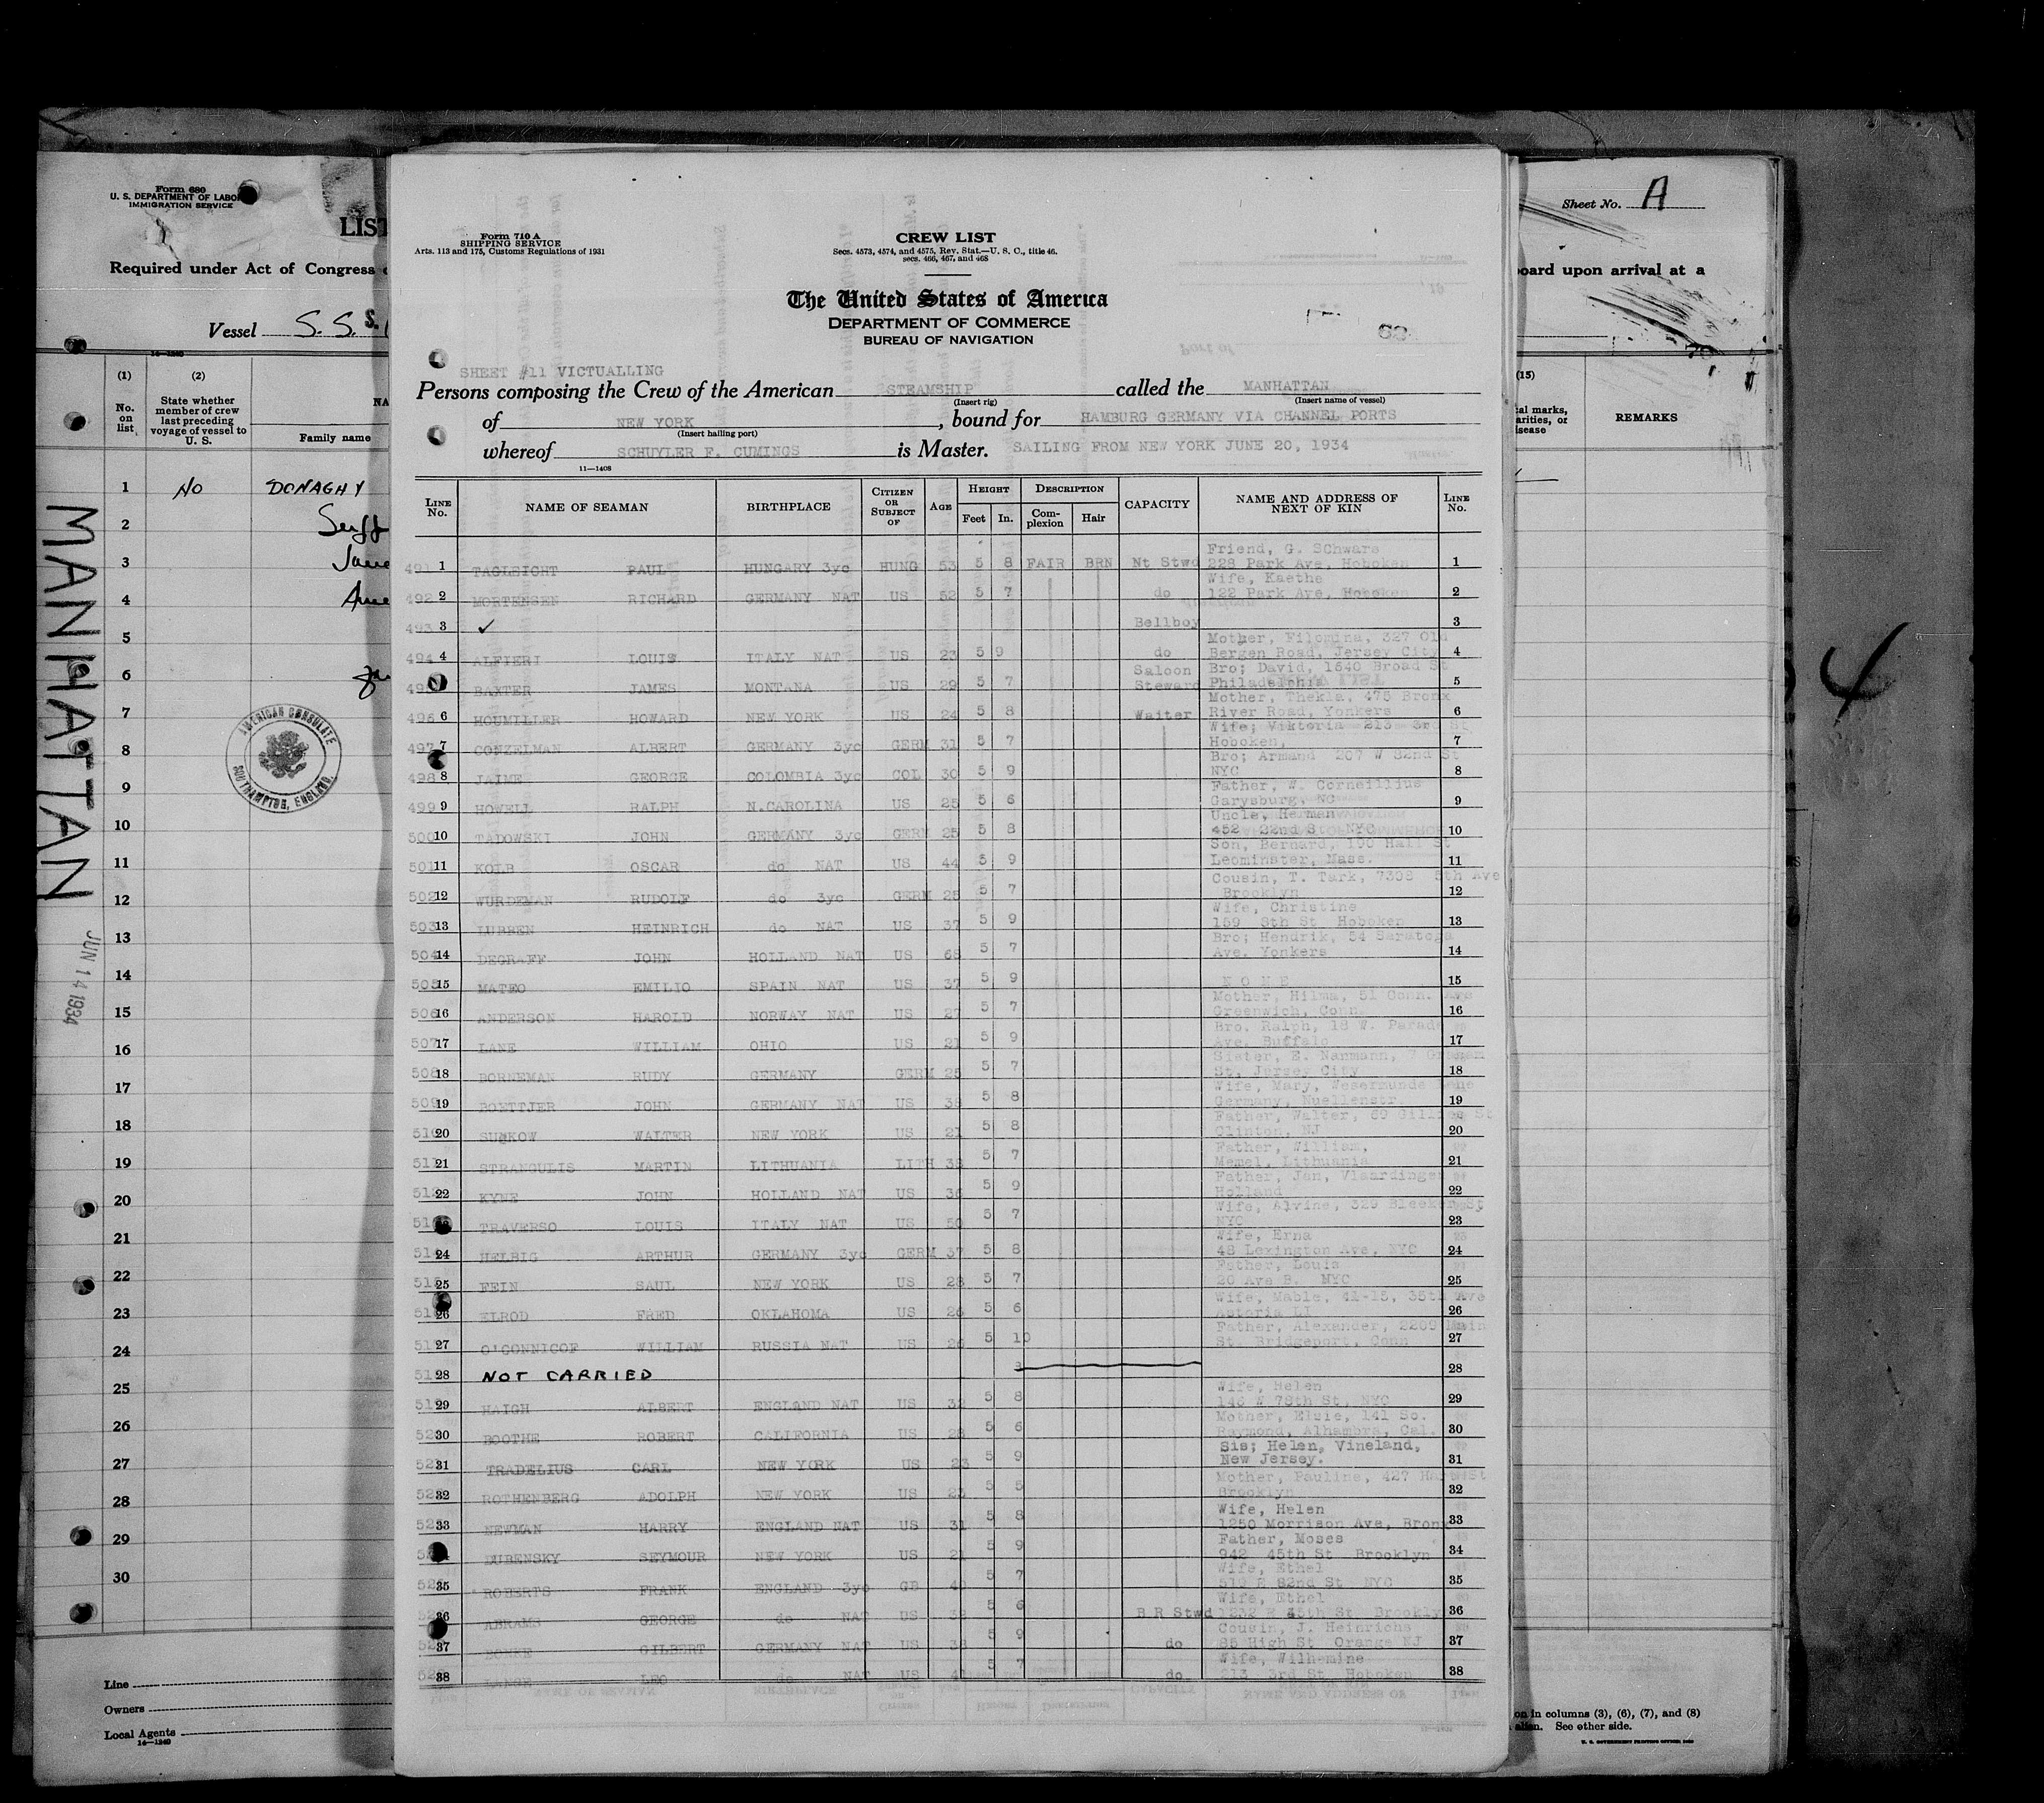 Form 680
U. S. DEPARTMENT OF LABO
IMMIGRATION SERVICE
LIST
Required under Act of Congress
Vessel S. S. S.
14—1240
(1) (2)
No. on list
State whether member of crew last preceding voyage of vessel to U. S.
NA
Family name
1 NO DONAGHY
2
3
4
5
6
7
8
9
10
11
12
13
14
15
16
17
18
19
20
21
22
23
24
25
26
27
28
29
30
AMERICAN CONSULATE
SOUTHAMPTON, ENGLAND.
MANHATTAN
JUN 14 1934
Line
Owners
Local Agents
14—1240
Form 710 A
SHIPPING SERVICE
Arts. 113 and 175, Customs Regulations of 1931
CREW LIST
Secs. 4573, 4574, and 4575, Rev. Stat.—U. S. C., title 46.
secs. 466, 467, and 468
The United States of America
DEPARTMENT OF COMMERCE
BUREAU OF NAVIGATION
SHEET #11 VICTUALLING
Persons composing the Crew of the American STEAMSHIP called the MANHATTAN
(Insert rig) (Insert name of vessel)
of NEW YORK, bound for HAMBURG GERMANY VIA CHANNEL PORTS
(Insert hailing port)
whereof SCHUYLER F. CUMINGS is Master. SAILING FROM NEW YORK JUNE 20, 1934
11—1408
LINE No. NAME OF SEAMAN BIRTHPLACE CITIZEN OR SUBJECT OF AGE HEIGHT Feet In. DESCRIPTION Complexion Hair CAPACITY NAME AND ADDRESS OF NEXT OF KIN LINE No.
491 1 TAGLEICHT PAUL HUNGARY 3yc HUNG 53 5 8 FAIR BRN Nt Stwd Friend, G. SChwars 228 Park Ave, Hoboken 1
492 2 MORTENSEN RICHARD GERMANY NAT US 52 5 7 do Wife, Kaethe 122 Park Ave, Hoboken 2
493 3 ✓ Bellboy 3
494 4 ALFIERI LOUIS ITALY NAT US 23 5 9 do Mother, Filomina, 327 Old Bergen Road, Jersey City 4
BAXTER JAMES MONTANA US 29 5 7 Saloon Steward Bro; David, 1640 Broad St Philadelphia 5
496 6 HOUMILLER HOWARD NEW YORK US 24 5 8 Waiter Mother, Thekla, 475 Bronx River Road, Yonkers 6
497 7 CONZELMAN ALBERT GERMANY 3yc GERM 31 5 7 Wife; Viktoria 213 3rd St Hoboken, 7
498 8 JAIME GEORGE COLOMBIA 3yc COL 30 5 9 Bro; Armand 207 W 82nd St NYC 8
499 9 HOWELL RALPH N.CAROLINA US 25 5 6 Father, W. Corneillius Garysburg, NC 9
500 10 TADOWSKI JOHN GERMANY 3yc GERM 25 5 8 Uncle, Herman 452 22nd St NYC 10
501 11 KOLB OSCAR do NAT US 44 5 9 Son, Bernard, 100 Hall St Leominster, Mass. 11
502 12 WURDEMAN RUDOLF do 3yc GERM 25 5 7 Cousin, T. Tark, 7308 5th Ave Brooklyn 12
503 13 LUBBEN HEINRICH do NAT US 37 5 9 Wife, Christine 159 8th St Hoboken 13
504 14 DEGRAFF JOHN HOLLAND NAT US 68 5 7 Bro; Hendrik, 54 Saratoga Ave. Yonkers 14
505 15 MATEO EMILIO SPAIN NAT US 37 5 9 N O N E 15
506 16 ANDERSON HAROLD NORWAY NAT US 27 5 7 Mother, Hilma, 51 Conn. Ave Greenwich, Conn. 16
507 17 LANE WILLIAM OHIO US 21 5 9 Bro, Ralph, 18 W. Parade Ave. Buffalo 17
508 18 BORNEMAN RUDY GERMANY GERM 25 5 7 Sister, E. Nanmann, 7 St, Jersey City 18
509 19 BOETTJER JOHN GERMANY NAT US 38 5 8 Wife, Mary, Wesermunde Germany, Nuellenstr. 19
20 SUCKOW WALTER NEW YORK US 21 5 8 Father, Walter, 60 St Clinton, NJ 20
21 STRANGULIS MARTIN LITHUANIA LITH 38 5 7 Father, William, Memel, Lithuania 21
512 22 KYNE JOHN HOLLAND NAT US 36 5 9 Father, Jan, Vlaardingen Holland 22
TRAVERSO LOUIS ITALY NAT US 50 5 7 Wife, Alvine, 329 Bleeker St NYC 23
24 HELBIG ARTHUR GERMANY 3yc GERM 37 5 8 Wife, Erna 48 Lexington Ave, NYC 24
25 FEIN SAUL NEW YORK US 28 5 7 Father, Louis 20 Ave B. NYC 25
26 ELROD FRED OKLAHOMA US 26 5 6 Wife, Mable, 41-15, 35th Ave Astoria LI 26
27 O'GONNICOF WILLIAM RUSSIA NAT US 26 5 10 Father, Alexander, 2209 Main St. Bridgeport, Conn 27
28 NOT CARRIED 28
29 HAIGH ALBERT ENGLAND NAT US 5 8 Wife, Helen 146 W 78th St, NYC 29
30 BOOTHE ROBERT CALIFORNIA US 5 6 Mother, Elsie, 141 So. Raymond, Alhambra, Cal. 30
31 TRADELIUS CARL NEW YORK US 23 5 9 Sis; Helen, Vineland, New Jersey. 31
32 ROTHENBERG ADOLPH NEW YORK US 23 5 5 Mother, Pauline, 427 St Brooklyn 32
33 NEWMAN HARRY ENGLAND NAT US 31 5 8 Wife, Helen 1250 Morrison Ave, Bronx 33
DUBENSKY SEYMOUR NEW YORK US 21 5 9 Father, Moses 942 45th St Brooklyn 34
35 ROBERTS FRANK ENGLAND 3yc GB 5 7 Wife, Ethel 519 E 82nd St NYC 35
36 ABRAMS GEORGE do NAT US 5 6 B R Stwd Wife, Ethel 45th St Brooklyn 36
37 GILBERT GERMANY NAT US 38 5 9 do Cousin, J. Heinrichs 85 High St Orange NJ 37
38 LANGE LEO do NAT US 5 7 do Wife, Wilhemine 213 3rd St Hoboken 38
Sheet No. A
board upon arrival at a
(15)
REMARKS
4
on in columns (3), (6), (7), and (8)
alien. See other side.
U. S. GOVERNMENT PRINTING OFFICE